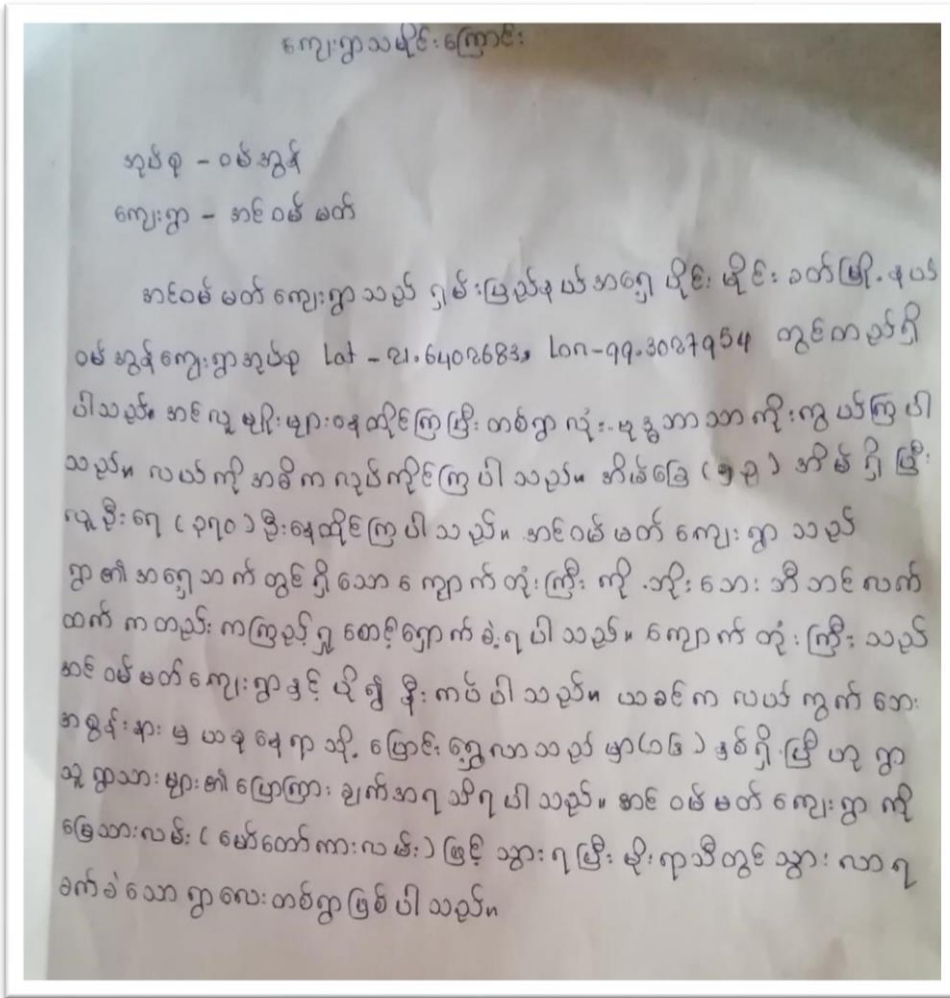 ကျေးရွာသမိုင်းကြောင်း
အုပ်စု - ဝမ်အွန်
ကျေးရွာ - အင်ဝမ်မတ်
အင်ဝမ်မတ်ကျေးရွာသည် ရှမ်းပြည်နယ်အရှေ့ပိုင်း မိုင်းခတ်မြို့နယ်
ဝမ်အွန်ကျေးရွာအုပ်စု Lat - 21.6402683, Lon-99.3027954 တွင်တည်ရှိ
ပါသည်။ အင်လူမျိုးများနေထိုင်ကြပြီး တစ်ရွာလုံးဗုဒ္ဓဘာသာကိုးကွယ်ကြပါ
သည်။ လယ်ကိုအဓိကလုပ်ကိုင်ကြပါသည်။ အိမ်ခြေ အိမ်ရှိပြီး
လူဦးရေ (၃၇၀) ဦးနေထိုင်ကြပါသည်။ အင်ဝမ်မတ်ကျေးရွာသည်
ရွာ၏အရှေ့ဘက်တွင်ရှိသော ကျောက်တုံးကြီးကို ဘိုးဘေးဘီဘင်လက်
ထက်ကတည်းကကြည့်ရှုစောင့်ရှောက်ခဲ့ရပါသည်။ ကျောက်တုံးကြီးသည်
အင်ဝမ်မတ်ကျေးရွာနှင့် ပို၍နီးကပ်ပါသည်။ ယခင်က လယ်ကွက်ဘေး
အစွန်းနားမှ ယခုနေရာသို့ ပြောင်းရွှေ့လာသည်မှာ နှစ်ရှိပြီဟု ရွာ
သူရွာသားများ၏ ပြောကြားချက်အရသိရပါသည်။ အင်ဝမ်မတ်ကျေးရွာကို
မြေသားလမ်း (မော်တော်ကားလမ်း) ဖြင့်သွားရပြီး မိုးရာသီတွင်သွားလာရ
ခက်ခဲသောရွာလေးတစ်ရွာဖြစ်ပါသည်။